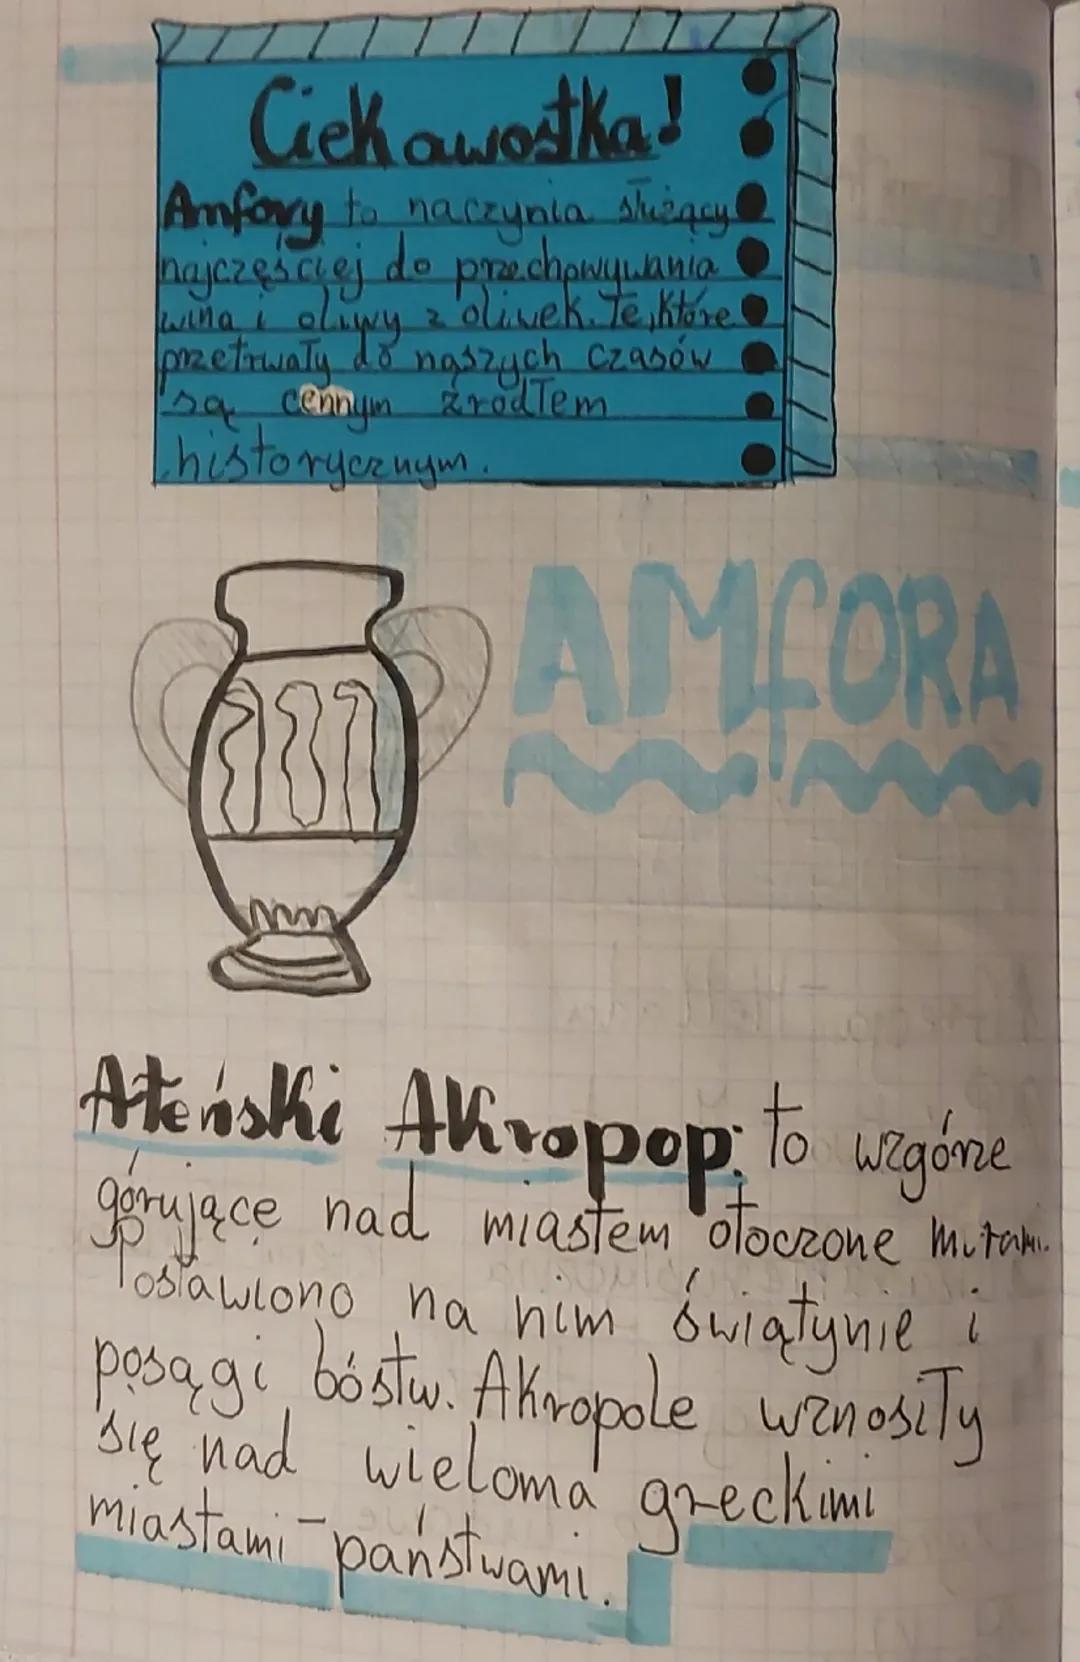 Ciekawostka!
Amfory to naczynia służący
najczęściej do przechowywania
wina i oliwy z oliwek. Te, które
przetrwały do naszych czasów
są cennym źrodłem
historycznym.
AMfORA
Ateński Akropop: to wzgórze
górujące nad miastem otoczone murami.
Postawiono na nim świątynie i
posągi bóstw. Akropole wznosiły
się nad wieloma greckimi
miastami-państwami.